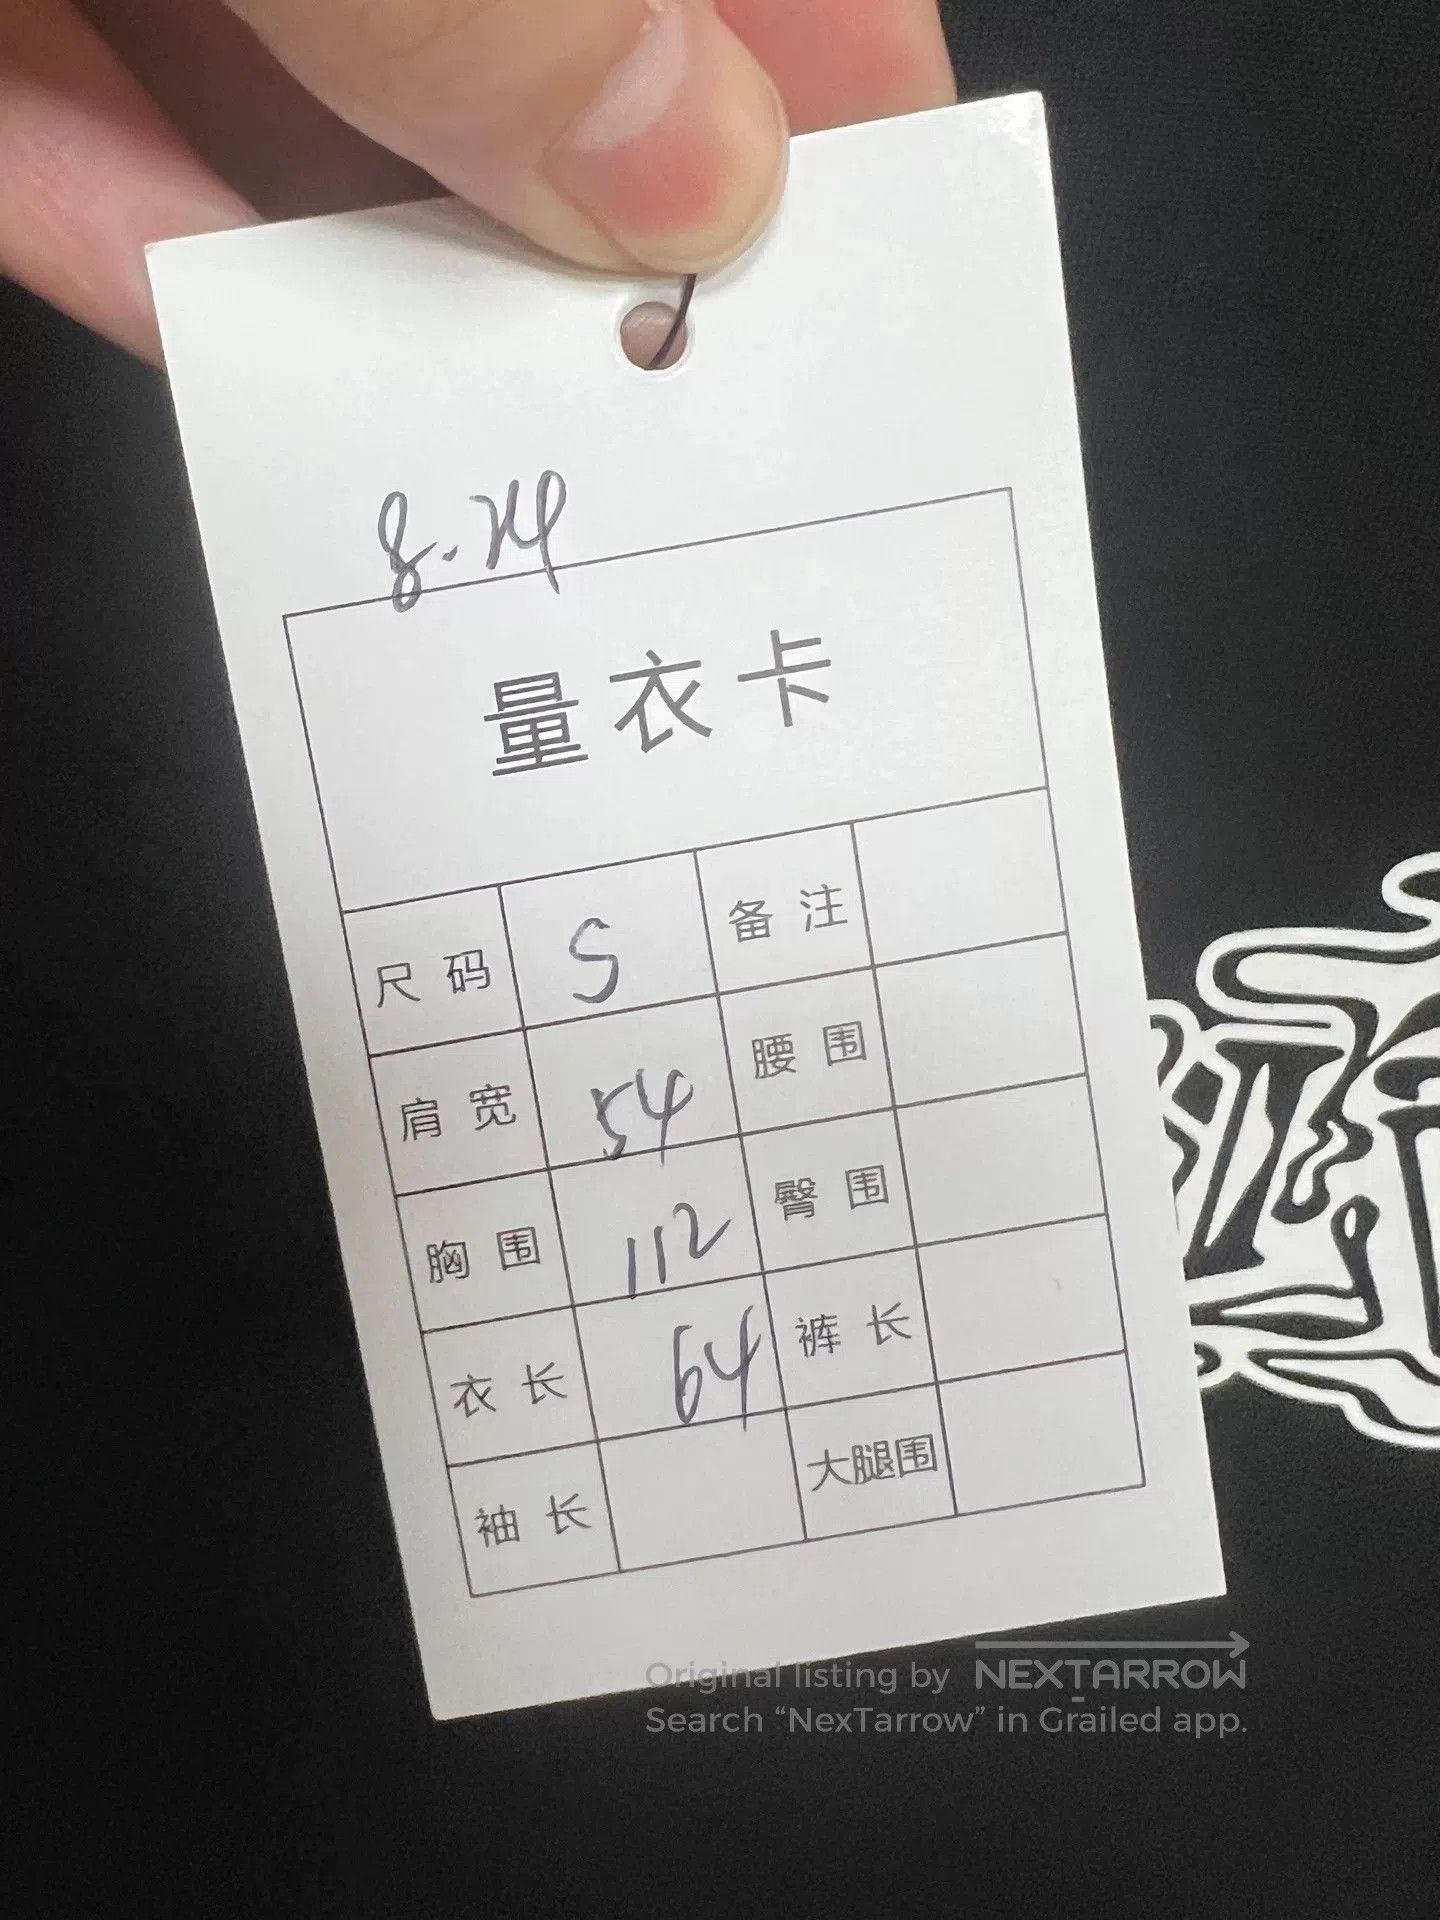 8.24
量衣卡
尺码 S 备注
肩宽 54 腰围
胸围 112 臀围
衣长 64 裤长
袖长 大腿围
Original listing by NEXTARROW
Search “NexTarrow” in Grailed app.